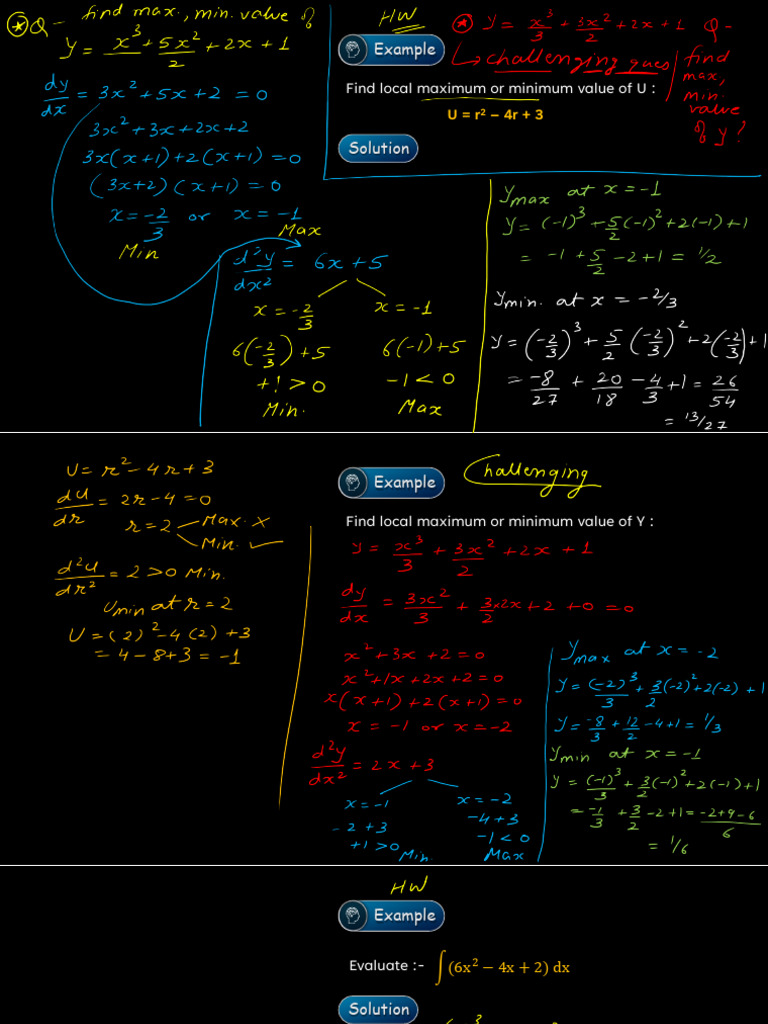 ⊛Q - find max., min. value of
y = x³ + 5x²/2 + 2x + 1
dy/dx = 3x² + 5x + 2 = 0
3x² + 3x + 2x + 2
3x(x+1) + 2(x+1) = 0
(3x+2)(x+1) = 0
x = -2/3 or x = -1
Min Max
d²y/dx² = 6x + 5
x = -2/3 x = -1
6(-2/3) + 5 6(-1) + 5
+1 > 0 -1 < 0
Min. Max
HW
Example
Find local maximum or minimum value of U :
U = r² – 4r + 3
Solution
⊛ y = x³/3 + 3x²/2 + 2x + 1 Q -
↳ challenging ques
find
max,
min.
value
of y?
y max at x = -1
y = (-1)³ + 5/2(-1)² + 2(-1) + 1
= -1 + 5/2 - 2 + 1 = 1/2
y min. at x = -2/3
y = (-2/3)³ + 5/2 (-2/3)² + 2(-2/3) + 1
= -8/27 + 20/18 - 4/3 + 1 = 26/54
= 13/27
U = r² - 4r + 3
dU/dr = 2r - 4 = 0
r = 2 Max. ×
Min. ✓
d²U/dr² = 2 > 0 Min.
U min at r = 2
U = (2)² - 4(2) + 3
= 4 - 8 + 3 = -1
Example
Challenging
Find local maximum or minimum value of Y :
y = x³/3 + 3x²/2 + 2x + 1
dy/dx = 3x²/3 + 3/2 × 2x + 2 + 0 = 0
x² + 3x + 2 = 0
x² + 1x + 2x + 2 = 0
x(x+1) + 2(x+1) = 0
x = -1 or x = -2
d²y/dx² = 2x + 3
x = -1 x = -2
-2 + 3 -4 + 3
+1 > 0 Min. -1 < 0 Max
y max at x = -2
y = (-2)³/3 + 3/2(-2)² + 2(-2) + 1
y = -8/3 + 12/2 - 4 + 1 = 1/3
y min at x = -1
y = (-1)³/3 + 3/2(-1)² + 2(-1) + 1
= -1/3 + 3/2 - 2 + 1 = -2+9-6/6
= 1/6
HW
Example
Evaluate :- ∫(6x² – 4x + 2) dx
Solution